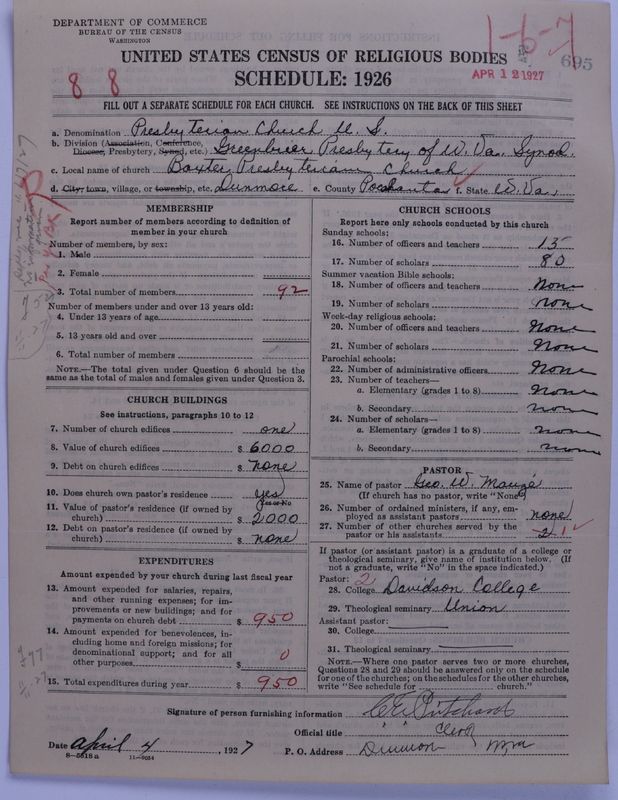 DEPARTMENT OF COMMERCE
BUREAU OF THE CENSUS
WASHINGTON
1-6-7
695
UNITED STATES CENSUS OF RELIGIOUS BODIES
APR 12 1927
8 8
SCHEDULE: 1926
FILL OUT A SEPARATE SCHEDULE FOR EACH CHURCH. SEE INSTRUCTIONS ON THE BACK OF THIS SHEET
a. Denomination Presbyterian Church U. S.
b. Division (Association, Conference, Diocese, Presbytery, Synod, etc.) Greenbrier Presbytery of W. Va. Synod.
c. Local name of church Baxter Presbyterian Church
d. City, town, village, or township, etc. Dunmore e. County Pocahontas f. State W. Va.
MEMBERSHIP
Report number of members according to definition of member in your church
Number of members, by sex:
1. Male
2. Female
3. Total number of members 92
Number of members under and over 13 years old:
4. Under 13 years of age
5. 13 years old and over
6. Total number of members
NOTE.—The total given under Question 6 should be the same as the total of males and females given under Question 3.
CHURCH BUILDINGS
See instructions, paragraphs 10 to 12
7. Number of church edifices one
8. Value of church edifices $ 6000
9. Debt on church edifices $ none
10. Does church own pastor's residence yes
Yes or No
11. Value of pastor's residence (if owned by church) $ 2000
12. Debt on pastor's residence (if owned by church) $ none
EXPENDITURES
Amount expended by your church during last fiscal year
13. Amount expended for salaries, repairs, and other running expenses; for improvements or new buildings; and for payments on church debt $ 950
14. Amount expended for benevolences, including home and foreign missions; for denominational support; and for all other purposes $ 0
15. Total expenditures during year $ 950
CHURCH SCHOOLS
Report here only schools conducted by this church
Sunday schools:
16. Number of officers and teachers 15
17. Number of scholars 80
Summer vacation Bible schools:
18. Number of officers and teachers None
19. Number of scholars none
Week-day religious schools:
20. Number of officers and teachers None
21. Number of scholars None
Parochial schools:
22. Number of administrative officers None
23. Number of teachers—
a. Elementary (grades 1 to 8) None
b. Secondary none
24. Number of scholars—
a. Elementary (grades 1 to 8) none
b. Secondary none
PASTOR
25. Name of pastor Geo. W. Mauzé
(If church has no pastor, write "None")
26. Number of ordained ministers, if any, employed as assistant pastors none
27. Number of other churches served by the pastor or his assistants 2 1
If pastor (or assistant pastor) is a graduate of a college or theological seminary, give name of institution below. (If not a graduate, write "No" in the space indicated.)
Pastor: 2
28. College Davidson College
29. Theological seminary Union
Assistant pastor:
30. College
31. Theological seminary
NOTE.—Where one pastor serves two or more churches, Questions 28 and 29 should be answered only on the schedule for one of the churches; on the schedules for the other churches, write "See schedule for church."
Signature of person furnishing information C E Pritchard
Official title Clerk
Date April 4, 1927 P. O. Address Dunmore W Va
8-5518a 11-9024